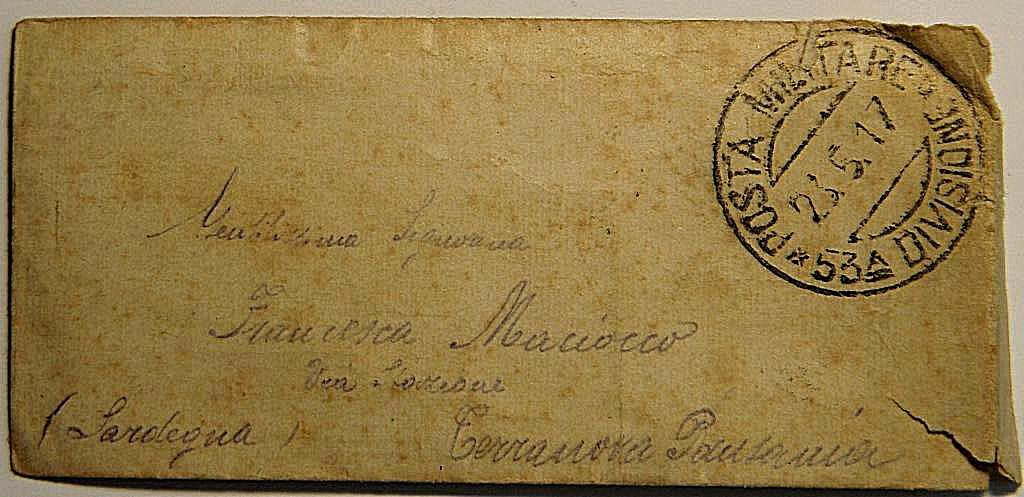 POSTA MILITARE
53A DIVISIONE
23.5.17
Gentilissima Signorina
Francesca Maciocco
Via Stazione
(Sardegna) Terranova Pausania